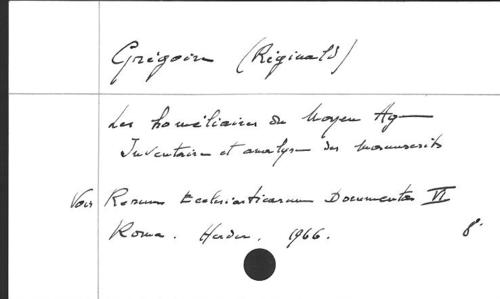 Grégoire (Réginald)
Les homéliaires du Moyen Age
Inventaire et analyse des manuscrits
Voir Rerum Ecclesiasticarum Documenta VI
Roma. Herder. 1966. 8°